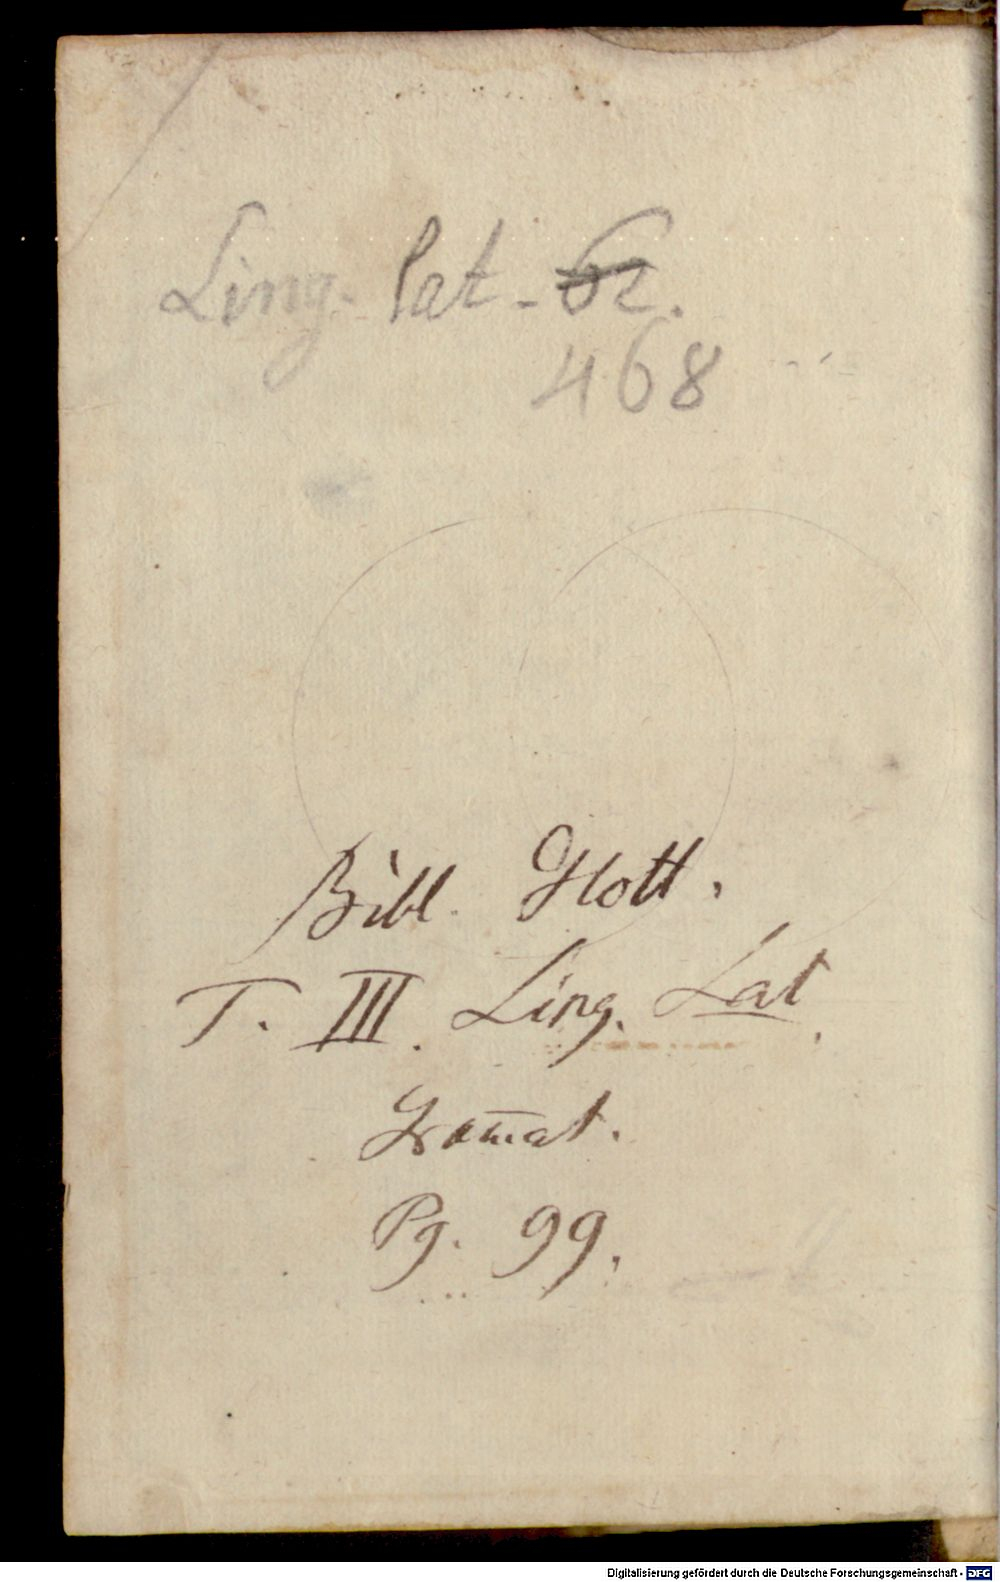 Ling. lat. 62.
468
Bibl. Hott.
T. III. Ling. Lat.
Gram̅at.
Pg. 99.
Digitalisierung gefördert durch die Deutsche Forschungsgemeinschaft - DFG